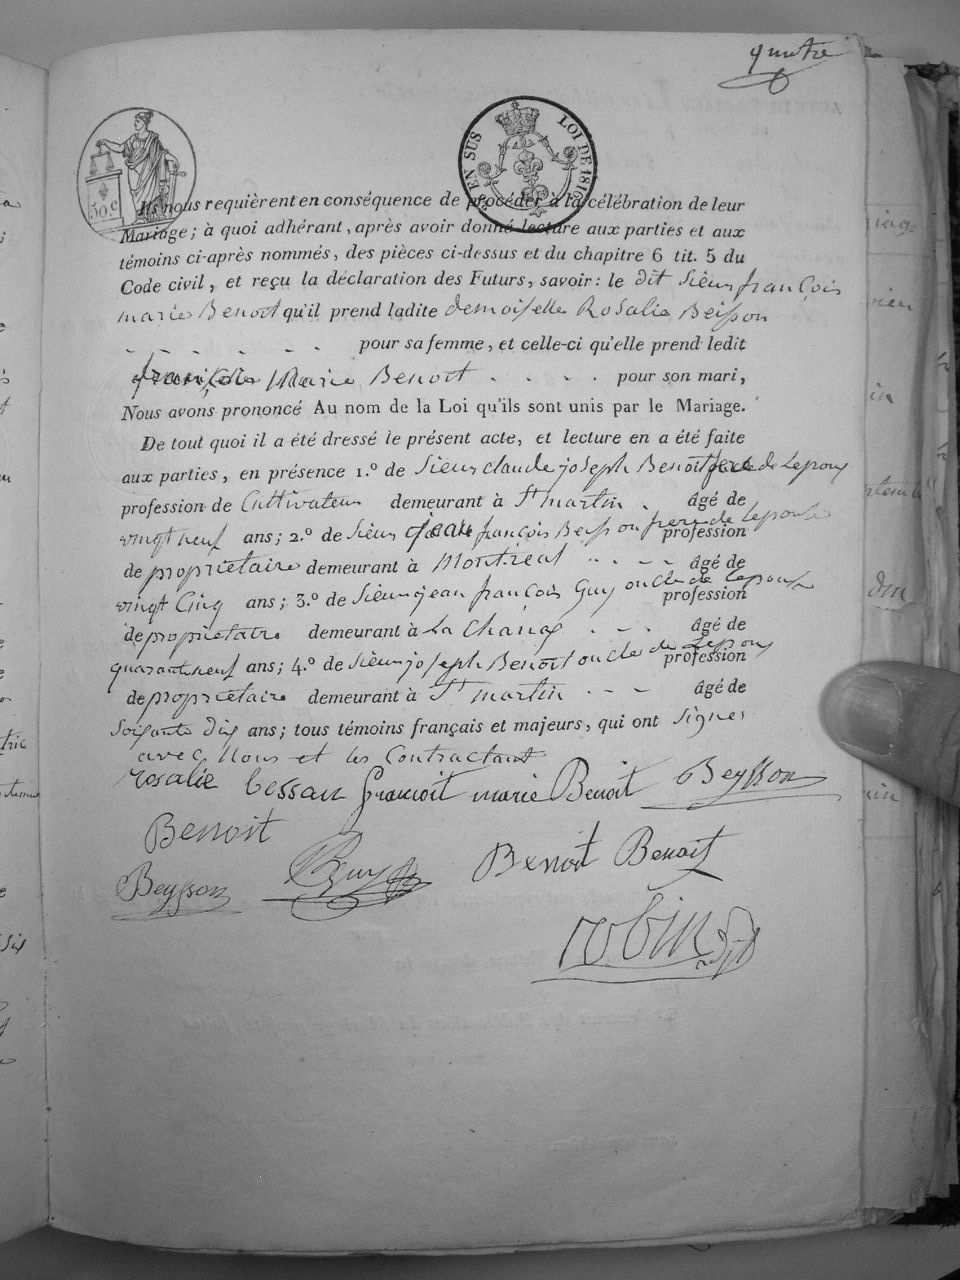 quatre
50 c
EN SUS
LOI DE 1816
Ils nous requièrent en conséquence de procéder à la célébration de leur
Mariage; à quoi adhérant, après avoir donné lecture aux parties et aux
témoins ci-après nommés, des pièces ci-dessus et du chapitre 6 tit. 5 du
Code civil, et reçu la déclaration des Futurs, savoir: le dit Sieur françois
marie Benoit qu'il prend ladite demoiselle Rosalie Beisson
pour sa femme, et celle-ci qu'elle prend ledit
françois Marie Benoit . . . . pour son mari,
Nous avons prononcé Au nom de la Loi qu'ils sont unis par le Mariage.
De tout quoi il a été dressé le présent acte, et lecture en a été faite
aux parties, en présence 1.º de Sieur claude joseph Benoit frere de Lepoux
profession de Cultivateur demeurant à St martin . âgé de
vingt neuf ans; 2.º de Sieur jean françois Beisson frere de Lepouse profession
de propriétaire demeurant à Montreal . . - - âgé de
vingt Cinq ans; 3.º de Sieur jean françois Guy oncle de Lepouse profession
de propriétaire demeurant à La Chana . - . âgé de
quarante neuf ans; 4.º de Sieur joseph Benoit oncle de Lepoux profession
de propriétaire demeurant à St martin - - - âgé de
Soixante Dix ans; tous témoins français et majeurs, qui ont signer
avec Nous et les Contractant
rosalie bessan francoit marie Benoit Beysson
Benoit
Beysson Guy Benoit Benoit
robin adjt